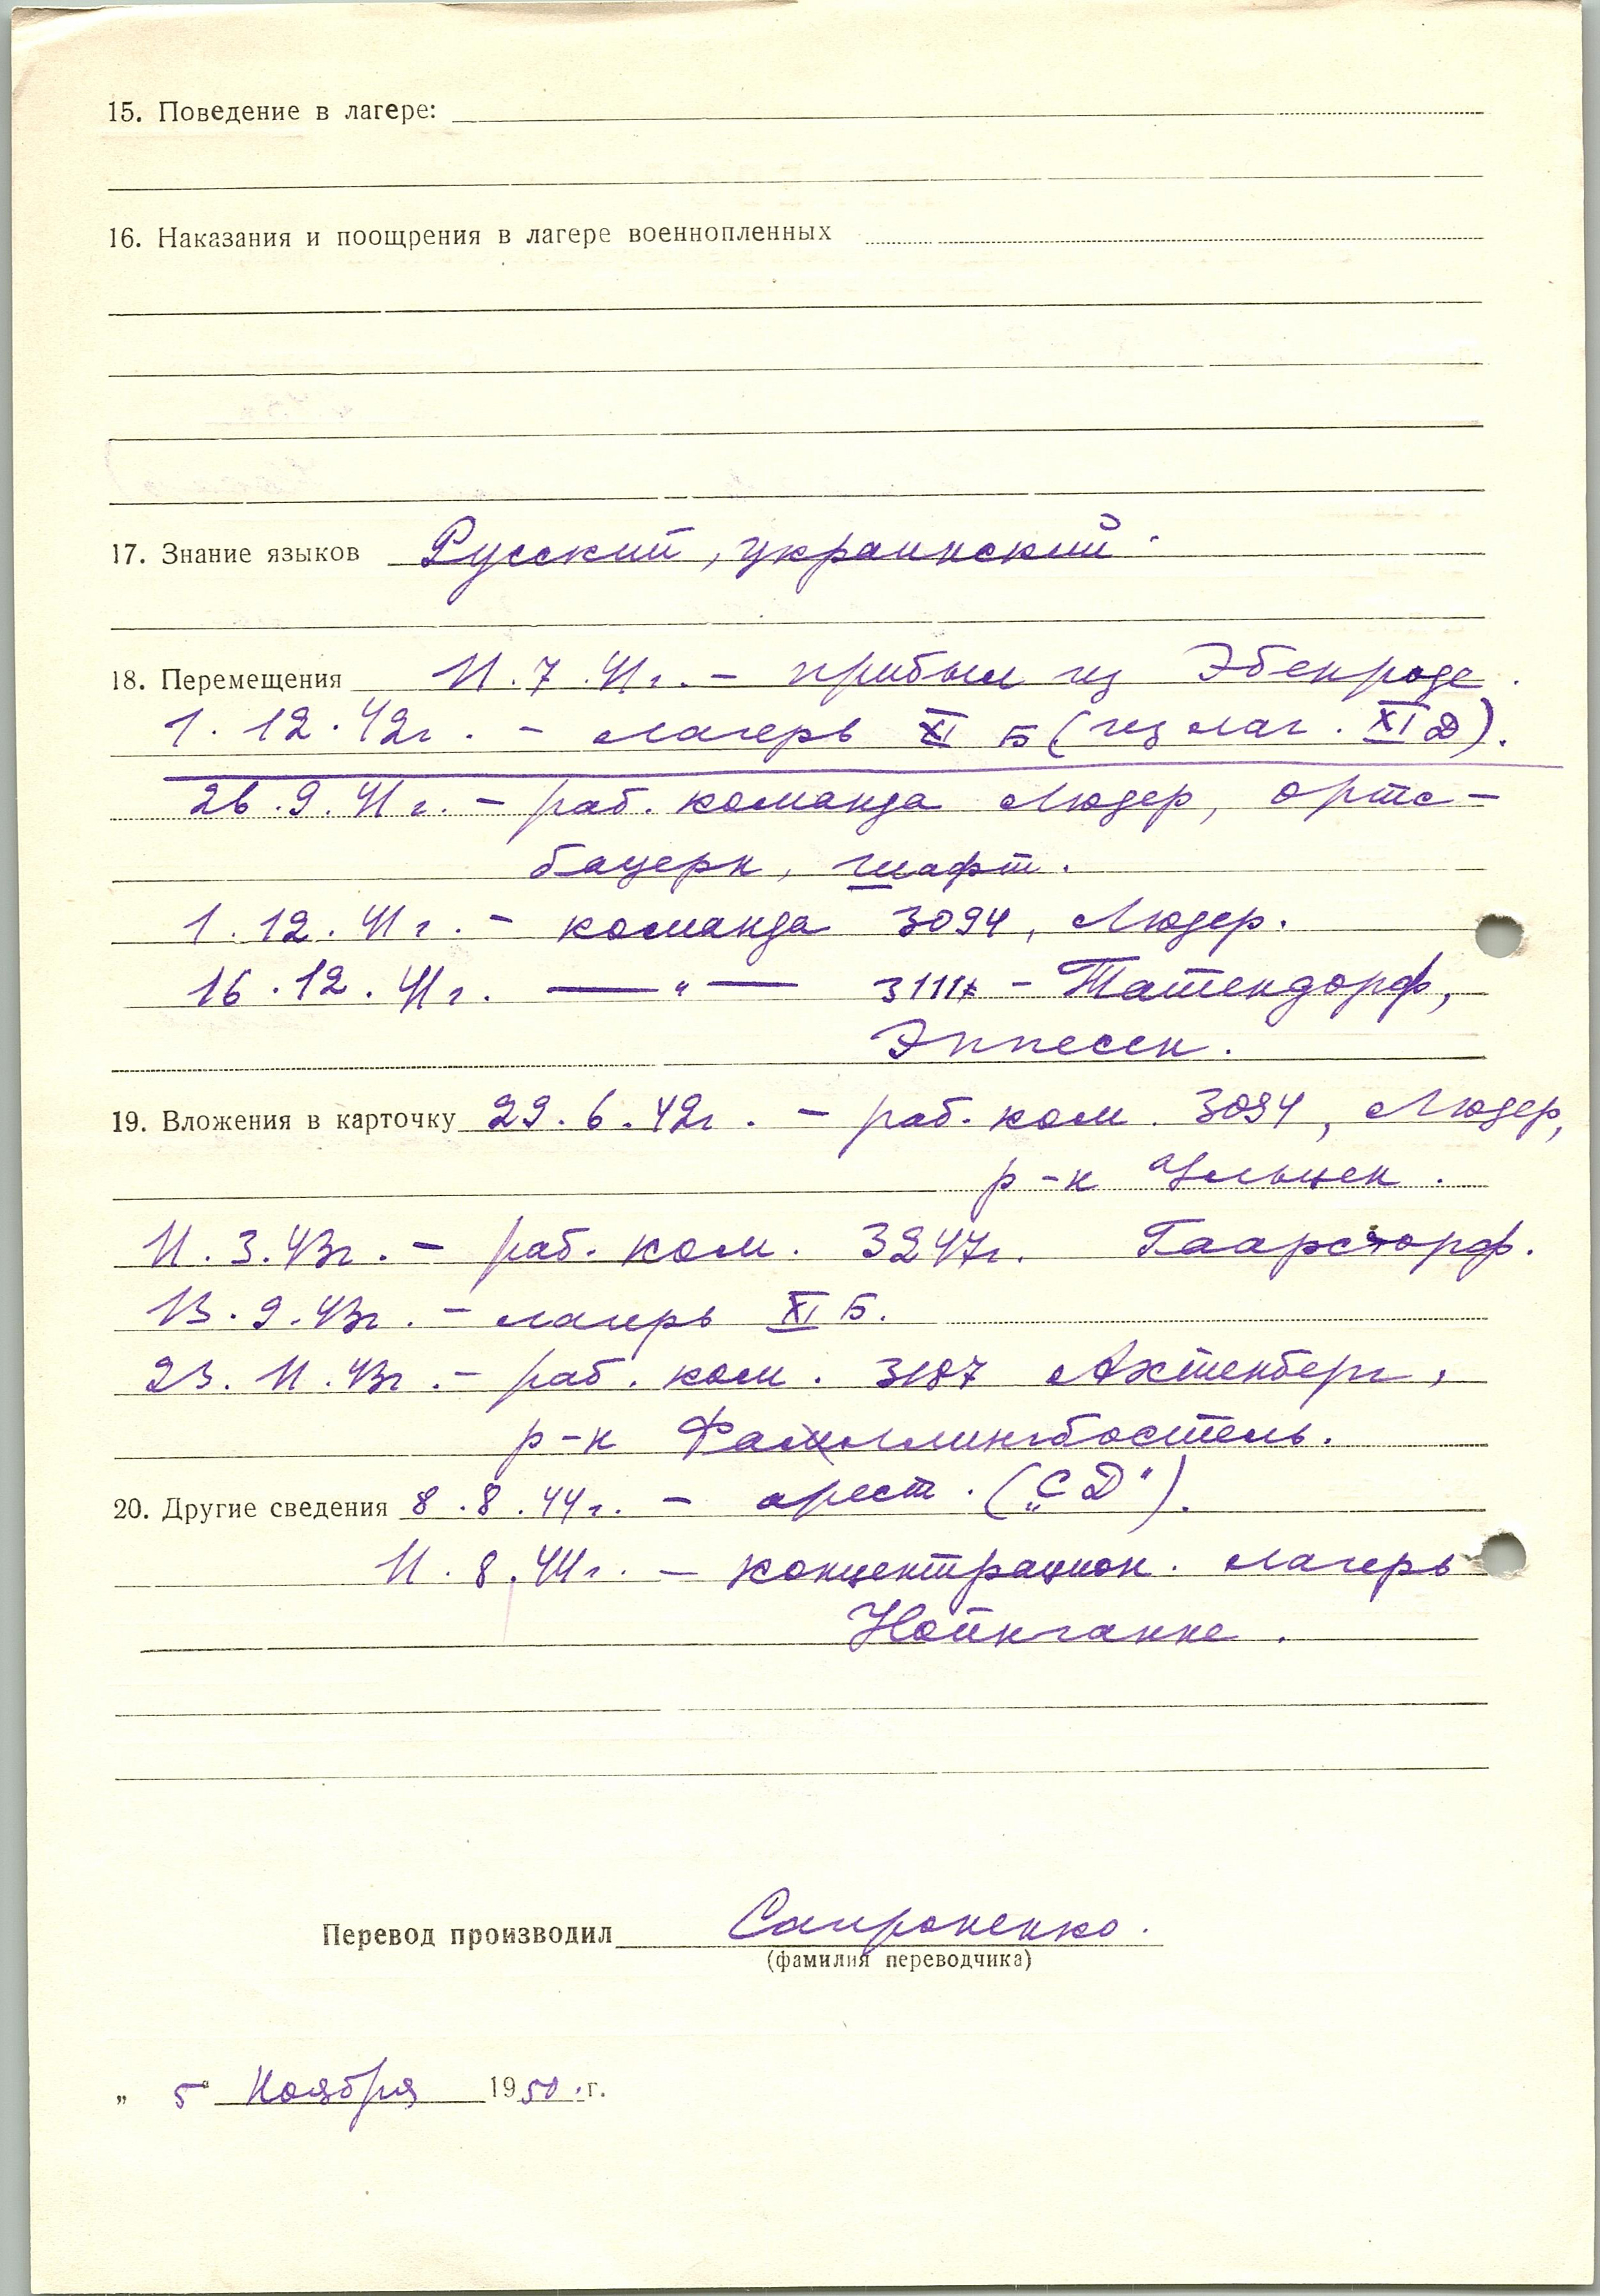 15. Поведение в лагере:
16. Наказания и поощрения в лагере военнопленных
17. Знание языков Русский, украинский.
18. Перемещения 11.7.41г. – прибыл из Эбенроде.
1.12.42г. – лагерь XI Б (из лаг. XI Д).
26.9.41г. – раб. команда Людер, ортс-
бауерн, шафт.
1.12.41г. – команда 3094, Людер.
16.12.41г. —"— 3111 – Татендорф,
Эппесен.
19. Вложения в карточку 29.6.42г. – раб. ком. 3094, Людер,
р-н Ульцен.
11.3.43г. – раб. ком. 3247г. Гаарсторф.
13.9.43г. – лагерь XI Б.
23.11.43г. – раб. ком. 3187 Ахтенберг,
р-н Фаллингбостель.
20. Другие сведения 8.8.44г. – арест. („СД").
11.8.44г. – концентрацион. лагерь
Нойнгамме.
Перевод производил Сапроненко.
(фамилия переводчика)
„5" Ноября 1950.г.